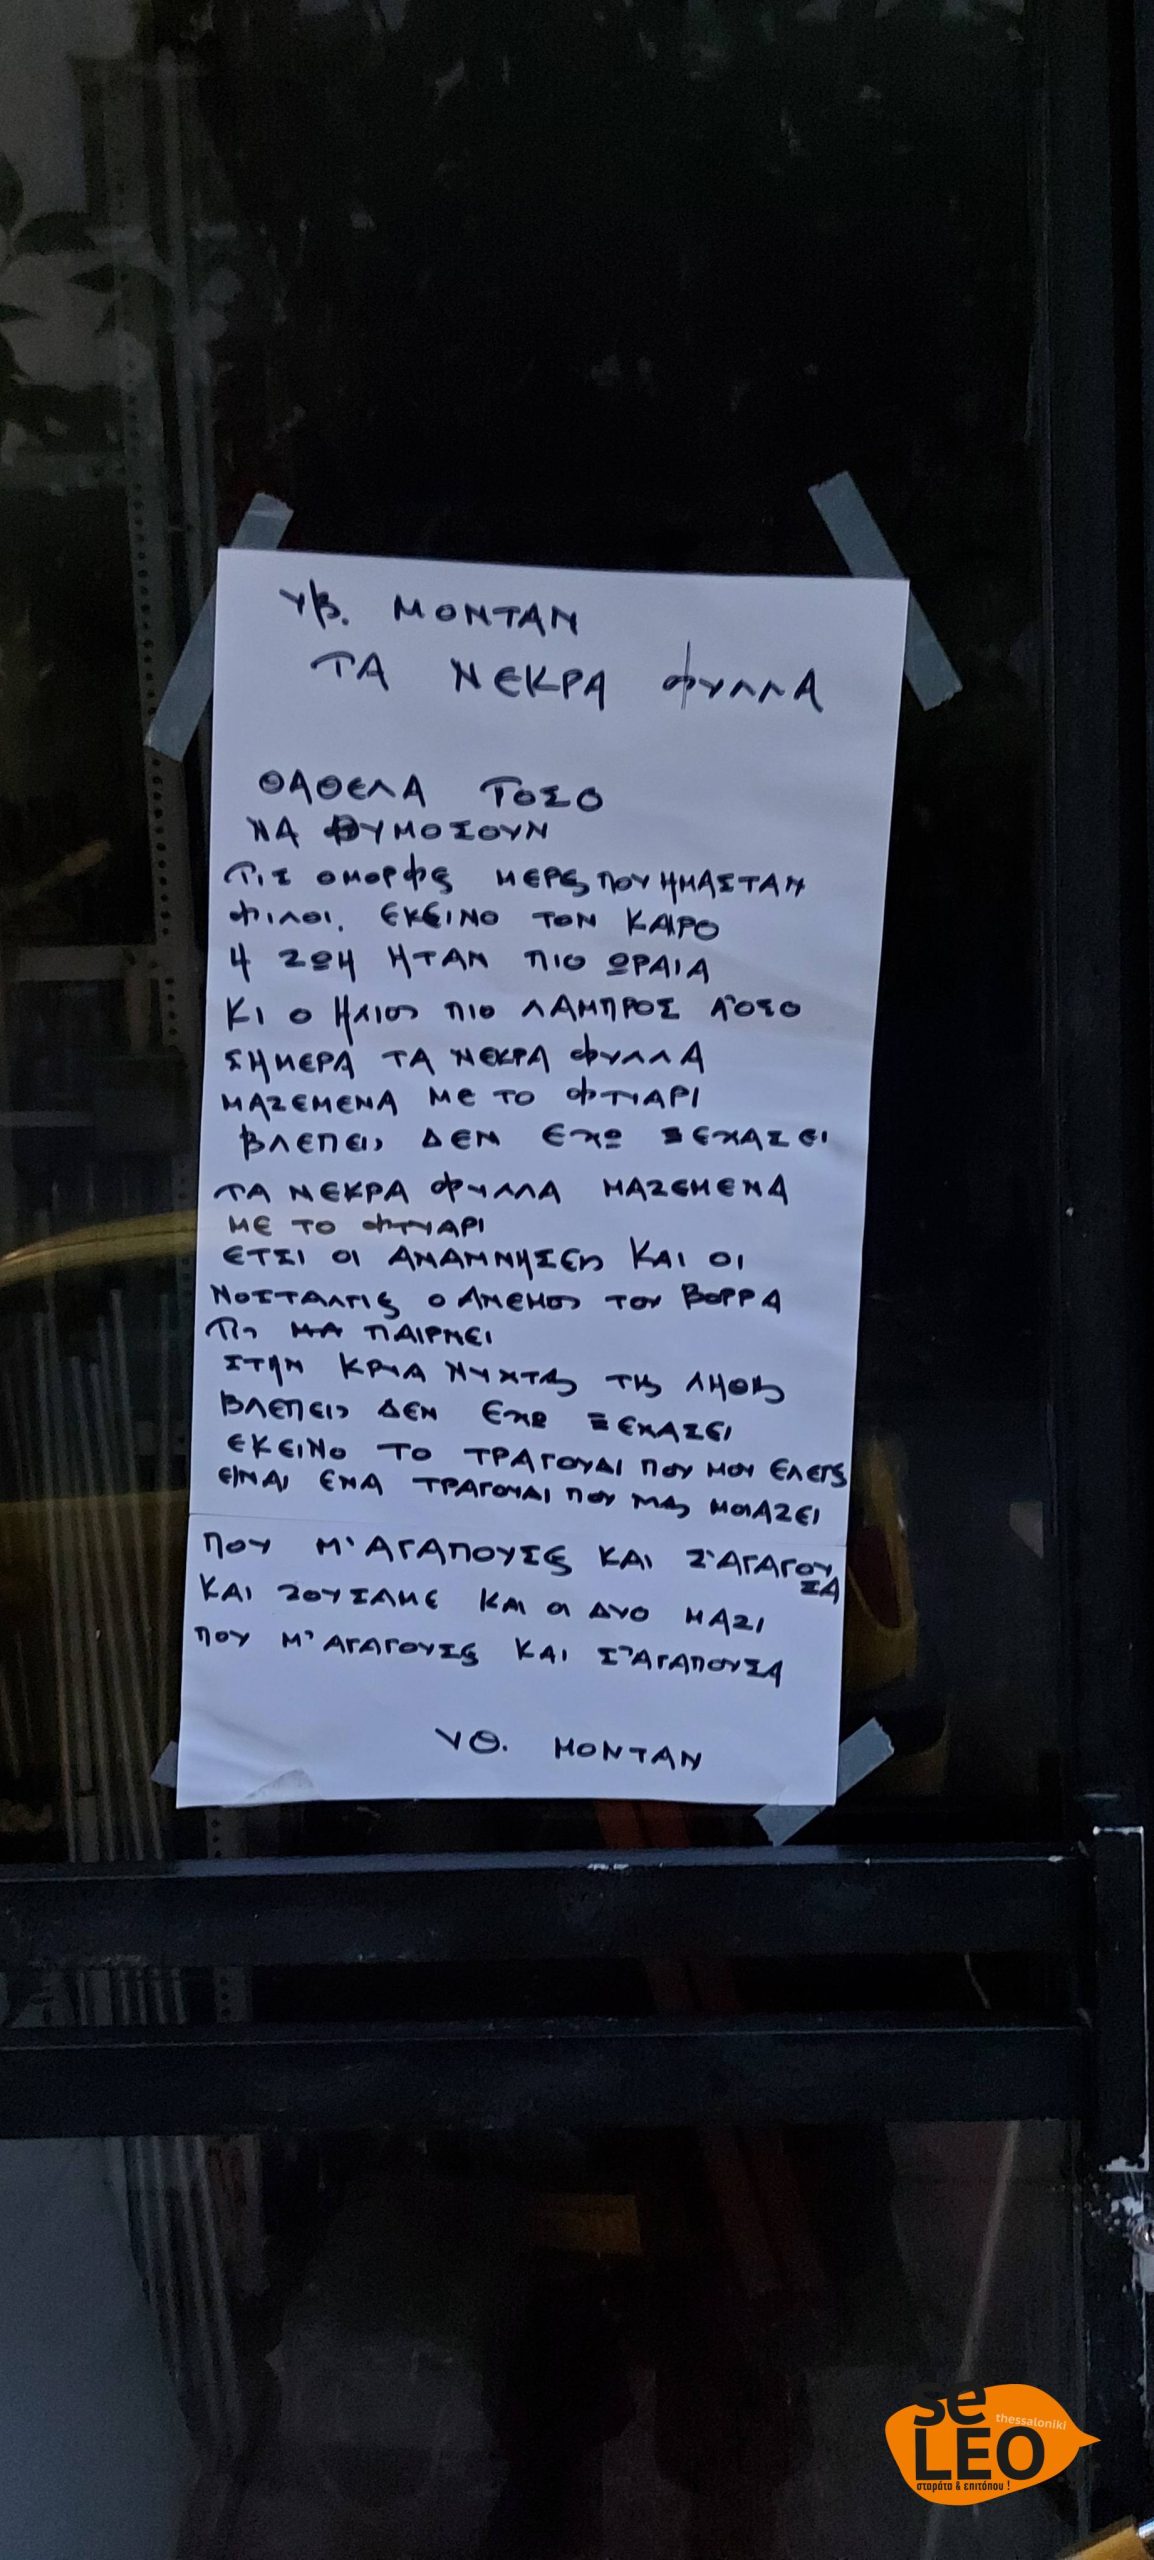 ΥΒ. ΜΟΝΤΑΝ
ΤΑ ΝΕΚΡΑ ΦΥΛΛΑ
ΘΑΘΕΛΑ ΤΟΣΟ
ΝΑ ΘΥΜΟΣΟΥΝ
ΤΙΣ ΟΜΟΡΦΕΣ ΜΕΡΕΣ ΠΟΥ ΗΜΑΣΤΑΝ
ΦΙΛΟΙ. ΕΚΕΙΝΟ ΤΟΝ ΚΑΙΡΟ
Η ΖΩΗ ΗΤΑΝ ΠΙΟ ΩΡΑΙΑ
ΚΙ Ο ΗΛΙΟΣ ΠΙΟ ΛΑΜΠΡΟΣ Α'ΟΣΟ
ΣΗΜΕΡΑ ΤΑ ΝΕΚΡΑ ΦΥΛΛΑ
ΜΑΖΕΜΕΝΑ ΜΕ ΤΟ ΦΤΙΑΡΙ
ΒΛΕΠΕΙΣ ΔΕΝ ΕΧΩ ΞΕΧΑΣΕΙ
ΤΑ ΝΕΚΡΑ ΦΥΛΛΑ ΜΑΖΕΜΕΝΑ
ΜΕ ΤΟ ΦΤΥΑΡΙ
ΕΤΣΙ ΟΙ ΑΝΑΜΝΗΣΕΙΣ ΚΑΙ ΟΙ
ΝΟΣΤΑΛΓΙΕΣ Ο ΑΝΕΜΟΣ ΤΟΥ ΒΟΡΡΑ
ΤΙΣ ΠΑΙΡΝΕΙ
ΣΤΗΝ ΚΡΥΑ ΝΥΧΤΑ ΤΗΣ ΛΗΘΗΣ
ΒΛΕΠΕΙΣ ΔΕΝ ΕΧΩ ΞΕΧΑΣΕΙ
ΕΚΕΙΝΟ ΤΟ ΤΡΑΓΟΥΔΙ ΠΟΥ ΜΟΥ ΕΛΕΓΕΣ
ΕΙΝΑΙ ΕΝΑ ΤΡΑΓΟΥΔΙ ΠΟΥ ΜΑΣ ΜΟΙΑΖΕΙ
ΠΟΥ Μ'ΑΓΑΠΟΥΣΕΣ ΚΑΙ Σ'ΑΓΑΓΟΥ
ΣΑ
ΚΑΙ ΖΟΥΣΑΜΕ ΚΑΙ ΟΙ ΔΥΟ ΜΑΖΙ
ΠΟΥ Μ'ΑΓΑΓΟΥΣΕΣ ΚΑΙ Σ'ΑΓΑΠΟΥΣΑ
ΥΘ. ΜΟΝΤΑΝ
se
thessaloniki
LEO
σταράτα & επιτόπου !